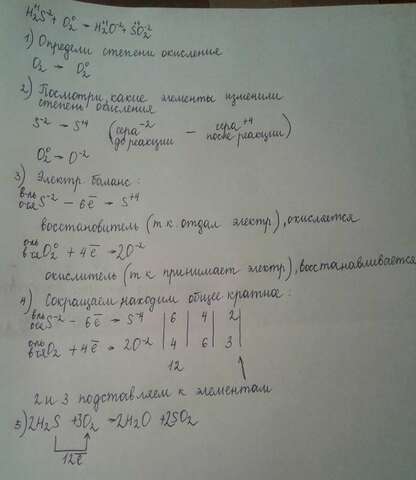 H₂⁺¹S⁻² + O₂⁰ → H₂⁺¹O⁻² + S⁺⁴O₂⁻²
1) Определи степени окисления
O₂ → O₂⁰
2) Посмотри, какие элементы изменили
степень окисления
S⁻² → S⁺⁴ (сера⁻² до реакции — сера⁺⁴ после реакции)
O₂⁰ → O⁻²
3) Электр. баланс:
в-ль о-ся S⁻² − 6ē → S⁺⁴
восстановитель (т к. отдал электр), окисляется
о-ль в-ся O₂⁰ + 4ē → 2O⁻²
окислитель (т к принимает электр), восстанавливается
4) Сокращаем находим общее кратное:
в-ль о-ся S⁻² − 6ē → S⁺⁴ | 6 | 4 | 2 |
о-ль в-ся O₂ + 4ē → 2O⁻² | 4 | 6 | 3 |
12
2 и 3 подставляем к элементам
5) 2H₂S + 3O₂ → 2H₂O + 2SO₂
12ē